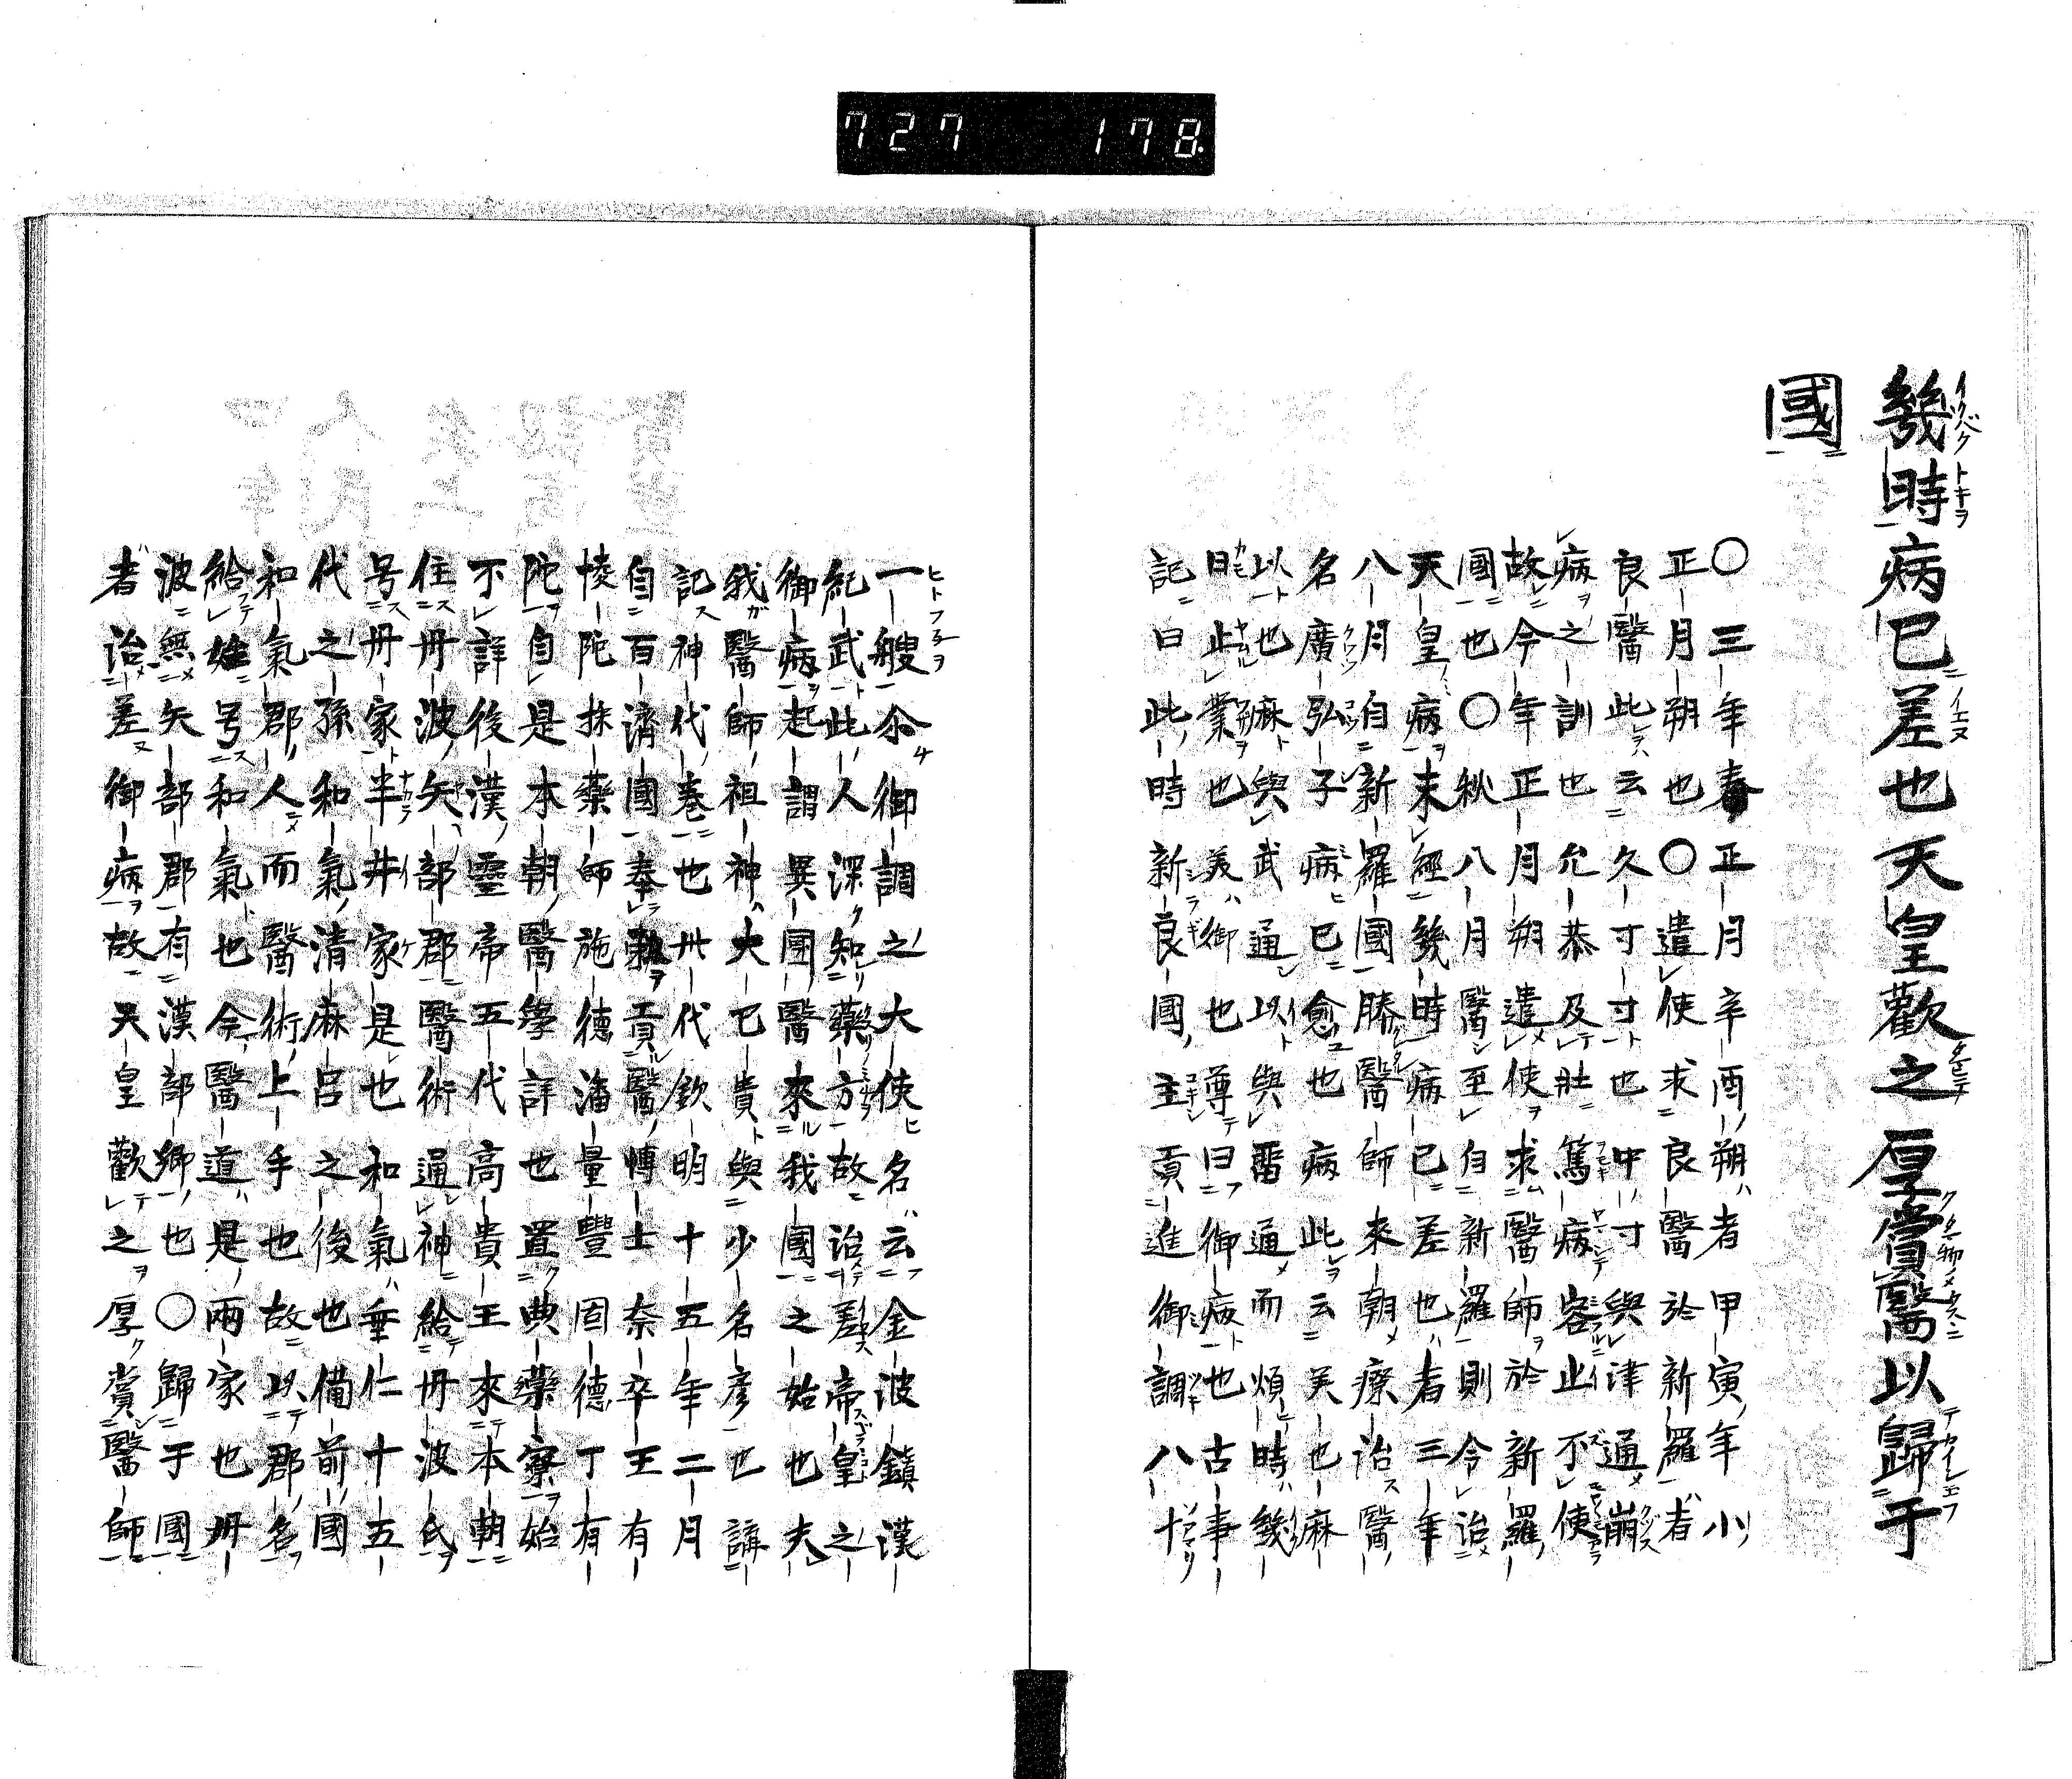 727 178
幾時病已差也天皇歡之厚賞醫以歸于
國
〇三年春正月辛酉朔者甲寅年小
正月朔也〇遣使求良醫於新羅者
良醫此云久寸寸也中寸與津通崩
病之訓也允恭及壯篤病容止不使
故今年正月朔遣使求醫師於新羅
國也〇秋八月醫至自新羅則令治
天皇病末經幾時病已差也者三年
八月自新羅國勝醫師來朝療治醫
名廣弘子病已愈也病此云关也麻
以也麻與武通以與畱通而煩時幾
日止業也美御也尊曰御病也古事
記曰此時新良國主貢進御調八十
一艘尒御調之大使名云金波鎮漢
紀武此人深知藥方故治差帝皇之
御病起謂異國醫來我國之始也夫
我醫師祖神大已貴與少名彦也講
記神代卷也卅代欽明十五年二月
自百濟國奉勅貢醫博士奈卒王有
悛陀採藥師施德潘量豐固德丁有
陀自是本朝醫學詳也置典藥寮始
不詳後漢靈帝五代高貴王來本朝
住丹波矢部郡醫術通神給丹波氏
号丹家半井家是也和氣垂仁十五
代之孫和氣清麻呂之後也備前國
和氣郡人而醫術上手也故以郡名
給姓号和氣也今醫道是兩家也丹
波無矢部郡有漢部鄉也〇歸于國
者治差御病故天皇歡之厚賞醫師